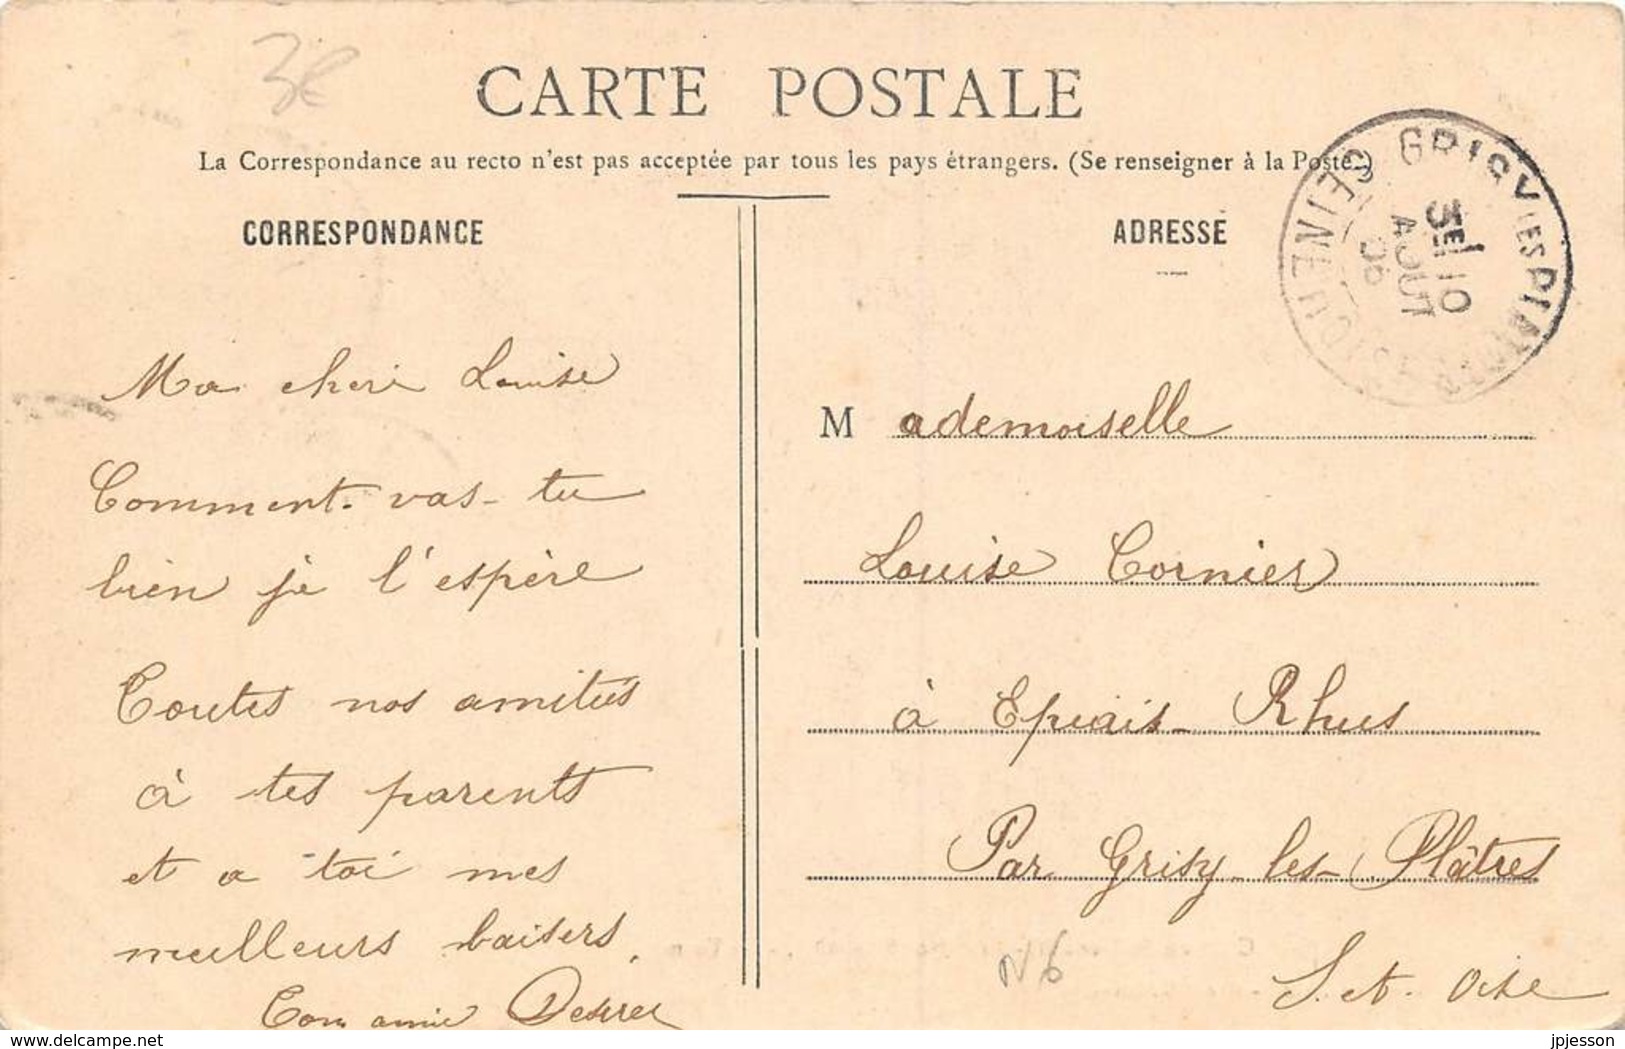 3€
CARTE POSTALE
La Correspondance au recto n'est pas acceptée par tous les pays étrangers. (Se renseigner à la Poste.)
CORRESPONDANCE
Ma cheri Louise
Comment. vas-tu
bien je l'espère
Toutes nos amitiés
à tes parents
et a toi mes
meilleurs baisers.
Ton amie
ADRESSE
Mademoiselle
Louise Cornier
à Epiais-Rhus
Par Grisy-les-Plâtres
S. et. Oise
GRISY LES PLATRES
SEINE ET OISE
3E 10
AOUT
N6
www.delcampe.net
jpjesson